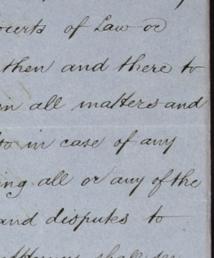 ourts of Law or
then and there to
in all matters and
to in case of any
ing all or any of the
and disputes to
shall